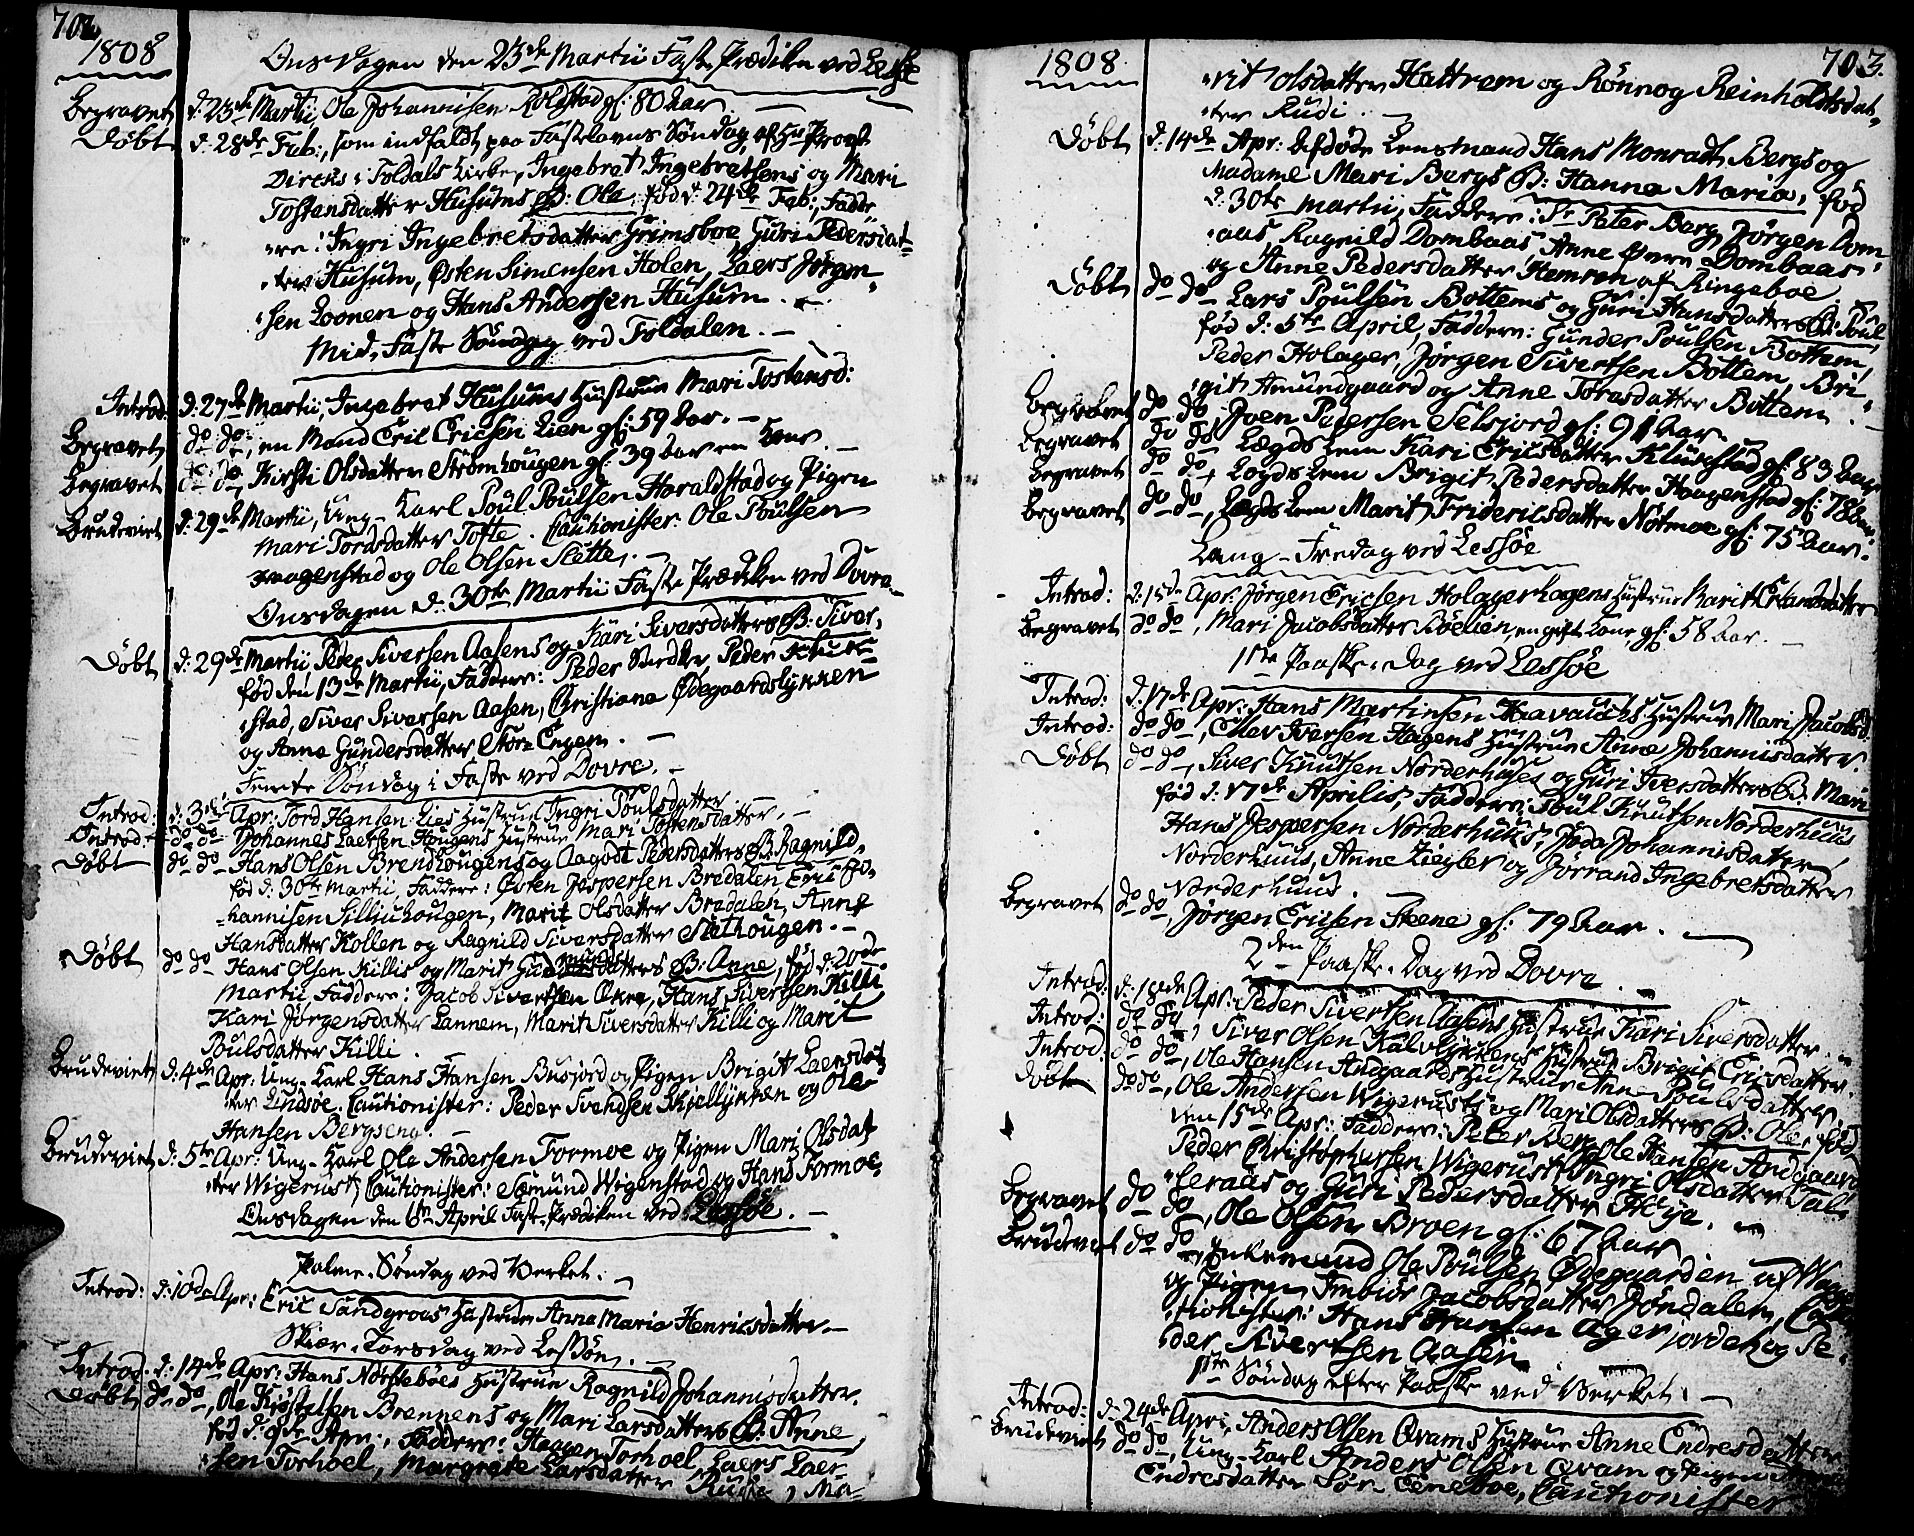 702
1808
Onsdagen den 23de Martii Faste Prædiken ved Lessøe
Begravet d: 23de Martii Ole Johannisen Rolstad gl: 80 Aar. —
Døbt d: 28de Feb:, som indfaldt paa Fastelavns Søndag, af Hr Provst
Dircks i Foldals Kirke, Ingebret Ingebretsens og Mari
Tostensdatter Husums B: Ole, fød d: 24de Feb:, Fadde
re: Ingri Ingebretsdatter Grimsboe Guri Pedersdat-
ter Husum, Østen Simensen Holen, Laers Jørgen-
sen Loonen og Hans Andersen Husum. —
Mid-Faste Søndag ved Foldalen. —
Introd: d: 27de Martii, Ingebret Husums Hustrue Mari Tostensd:
Begravet do do, en Mand Eric Ericsen Lien gl: 59 Aar. —
Begravet do do, Kirsti Olsdatter Strømhougen gl: 39 Aar en Kone. —
Brudeviet d: 29de Martii, Ung-Karl Poul Poulsen Haraldstad og Pigen
Mari Tordsdatter Tofte. Cautionister: Ole Poulsen
Haagenstad og Ole Olsen Slette. —
Onsdagen d: 30te Martii Faste Prædiken ved Dovre —
Døbt d: 29de Martii Peder Siversen Aasens og Kari Siversdatters B: Siver,
fød den 13de Martii, Faddere: Peder Peder
stad, Siver Siversen Aasen, Christiane Ødegaardslykken
og Anne Gundersdatter Store Engen. —
Femte Søndag i Faste ved Dovre. —
Introd: d: 3de Apr: Tord Hansen Lies Hustrue Ingri Poulsdatter
Introd: do do Johannes Laersen Hougens Hustrue Mari Tostensdatter. —
Døbt do do Hans Olsen Brendhougens og Aagodt Pedersdatters B: Ragnild,
fød d: 30te Martii, Faddere: Østen Jespersen Bredalen, Eric Jo-
hannisen Silliuhougen, Marit Olsdatter Bredalen, Anne
Hansdatter Kollen og Ragnild Siversdatter Slethougen. —
Døbt do do Hans Olsen Killis og Marit Gudmundsdatters B: Anne, fød d: 20de
Martii, Faddere: Jacob Sivertsen Økre, Hans Siversen Killi
Kari Jørgensdatter Lannem, Marit Siversdatter Killi og Marit
Poulsdatter Killi.
Brudeviet d: 4de Apr: Ung-Karl Hans Hansen Busjord og Pigen Brigit Laersdat
ter Lindsøe. Cautionister: Peder Svendsen Skjellykken og Ole
Hansen Bergseng. —
Brudeviet d: 5te Apr: Ung-Karl Ole Andersen Formoe og Pigen Mari Olsdat
ter Wigerust, Cautionister: Sæmund Wigenstad og Hans Formoe,
Onsdagen den 6te April Faste-Prædiken ved Lessøe. —
Palme-Søndag ved Verket. —
Introd: d: 10de Apr: Eric Sandgroes Hustrue Anna Maria Henricsdatter. —
Skiær-Torsdag ved Lessøe. —
Introd: d: 14de Apr: Hans Nørsteboes Hustrue Ragnild Johannisdatter.
Døbt do do, Ole Brennens og Mari Larsdatters B: Anne,
fød d: 9de Apr:, Faddere: Haagen Torhoel, Laers Laer-
sen Torhoel, Margrete Larsdatter Ma-
1808.
703.
rit Olsdatter Hattrem og Rønnog Reinholdtsdat-
ter Rudi. —
Døbt d: 14de Apr: Afdøde Lensmand Hans Monradt Bergs og
Madame Mari Bergs B: Hanna Maria, fød
d: 30te Martii, Faddere: Sr Peter Berg, Jørgen Dom
aas Ragnild Dombaas Anne Dombaas
og Anne Pedersdatter Hemren af Ringeboe
Døbt do do Lars Poulsen Bottems og Guri Hansdatters B: Poul
fød d: 5te April, Faddere: Gunder Poulsen Bottem,
Peder Holager, Jørgen Sivertsen Bottem, Bri-
git Amundgaard og Anne Toradatter Bottem. —
Begravet do do Joen Pedersen Selsjord gl: 91 Aar
Begravet do do Lægdslem Kari Ericsdatter Klunstad gl: 83 Aar
Begravet do do, Legdslem Brigit Pedersdatter Haagenstad gl: 78 Aar.
Begravet do do, Lægdslem Marit Fridericsdatter Nötmoe gl: 75 Aar.
Lang-Fredag ved Lessøe
Introd: d: 15de Apr: Jørgen Ericsen Holagerhagens Hustrue Marit Erlandsdatter
Begravet do do, Mari Jacobsdatter Bøelien, en gift Kone gl: 58 Aar. —
1ste Paaske-Dag ved Lessøe
Introd: d: 17de Apr: Hans Martinsen Hustrue Mari Jacobsd:
Introd: do do, Eller Iversen Hagens Hustrue Anne Johannisdatter
Døbt do do, Siver Knutsen Norderhuses og Guri Iversdatters B: Mari
fød d: 17de Aprilis, Faddere: Poul Knutsen Norderhuus
Hans Jespersen Norderhuus, Johannisdatter
Norderhuus, Anne Ziegler og Jørrand Ingebretsdatter
Norderhuus.
Begravet do do, Jørgen Ericsen Steene gl: 79 Aar. —
2den Paaske-Dag ved Dovre
Introd: d: 18de Apr: Peder Sivertsen Aasens Hustrue Kari Siversdatter. —
Introd: do do, Siver Olsen Kalvlykkens Hustrue Brigit Ericsdatter
Introd: do do, Ole Hansen Andgaards Hustrue Anne Poulsdatter
Døbt do do, Ole Andersen Wigerusts og Mari Olsdatters B: Ole, fød
den 15de Apr: Faddere: Peter Berg Ole Hansen Andgaard
Peder Christophersen Wigerust, Ingri Olsdatter Tal-
leraas og Guri Pedersdatter Heje. —
Begravet do do, Ole Olsen Broen gl: 67 Aar
Brudeviet do do, Enkemand Ole Poulsen Ødegaarden af Waage
og Pigen Imbiør Jacobsdatter Jøndalen, Cau
tionister: Hans Hansen Agerjordet og Pe-
der Sivertsen Aasen
1ste Søndag efter Paaske ved Verket. —
Introd: d: 24de Apr:, Anders Olsen Qvams Hustrue Anne Endresdatter
Brudeviet do do, Ung-Karl Anders Olsen Qvam og Pigen
Endresdatter Sør- Eneboe, Cautionister